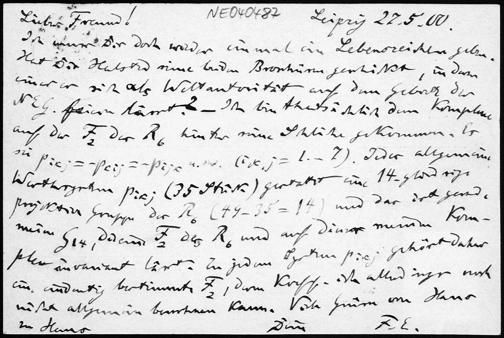 NE040487
Lieber Freund! Leipzig 27.5.00.
Ich muss Dir doch wieder einmal ein Lebenszeichen geben.
Hat Dir Halsted seine beiden Broschüren geschickt, in denen
einer er sich als Weltautorität auf dem Gebiete der
N.E.G. feiern lässt? – Ich bin thatsächlich dem Komplexe
auf der F₂ des R₆ hinter seine Schliche gekommen. Es
sei p_ikj = -p_kij = -p_ijk u.s.w. (i,k,j = 1 – 7). Jedes allgemeine
Werthsystem p_ikj (35 Stück) gestattet eine 14-gliedrige
projektive Gruppe des R₆ (49–35=14) und das ist gerade
meine G₁₄, die eine F₂ des R₆ und auf dieser meinen Kom-
plex invariant lässt. Zu jedem System p_ikj gehört daher
eine eindeutig bestimmte F₂, deren Koeff. ich allerdings noch
nicht allgemein berechnen kann. Viele Grüsse von Haus
zu Haus Dein F.E.